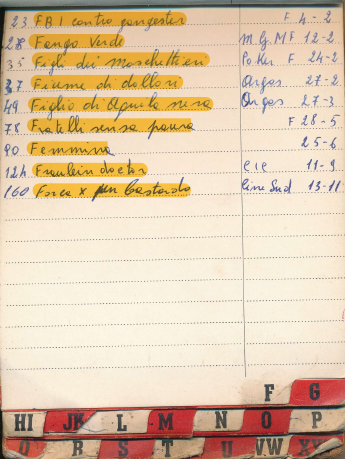 23 FBI contro gangster F 4-2
28 Fango Verde M.G.M F 12-2
35 Figli dei Moschettieri Poker F 24-2
37 Fiume di dollari Argos 27-2
49 Figlio di Aquila nera Argos 27-3
78 Fratelli senza paura F 28-5
90 Femmina 25-6
124 Fraulein doctor CIC 11-9
160 Forca x un bastardo Cine Sud 13-11
F G
HI JK L M N O P
Q R S T U VW XY